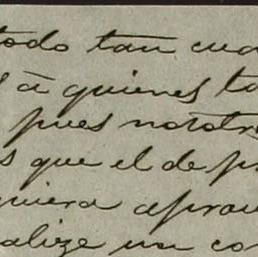 todo tan cua
s á quienes ta
pues nosotr
s que el de pr
quiera aprau
alize un co